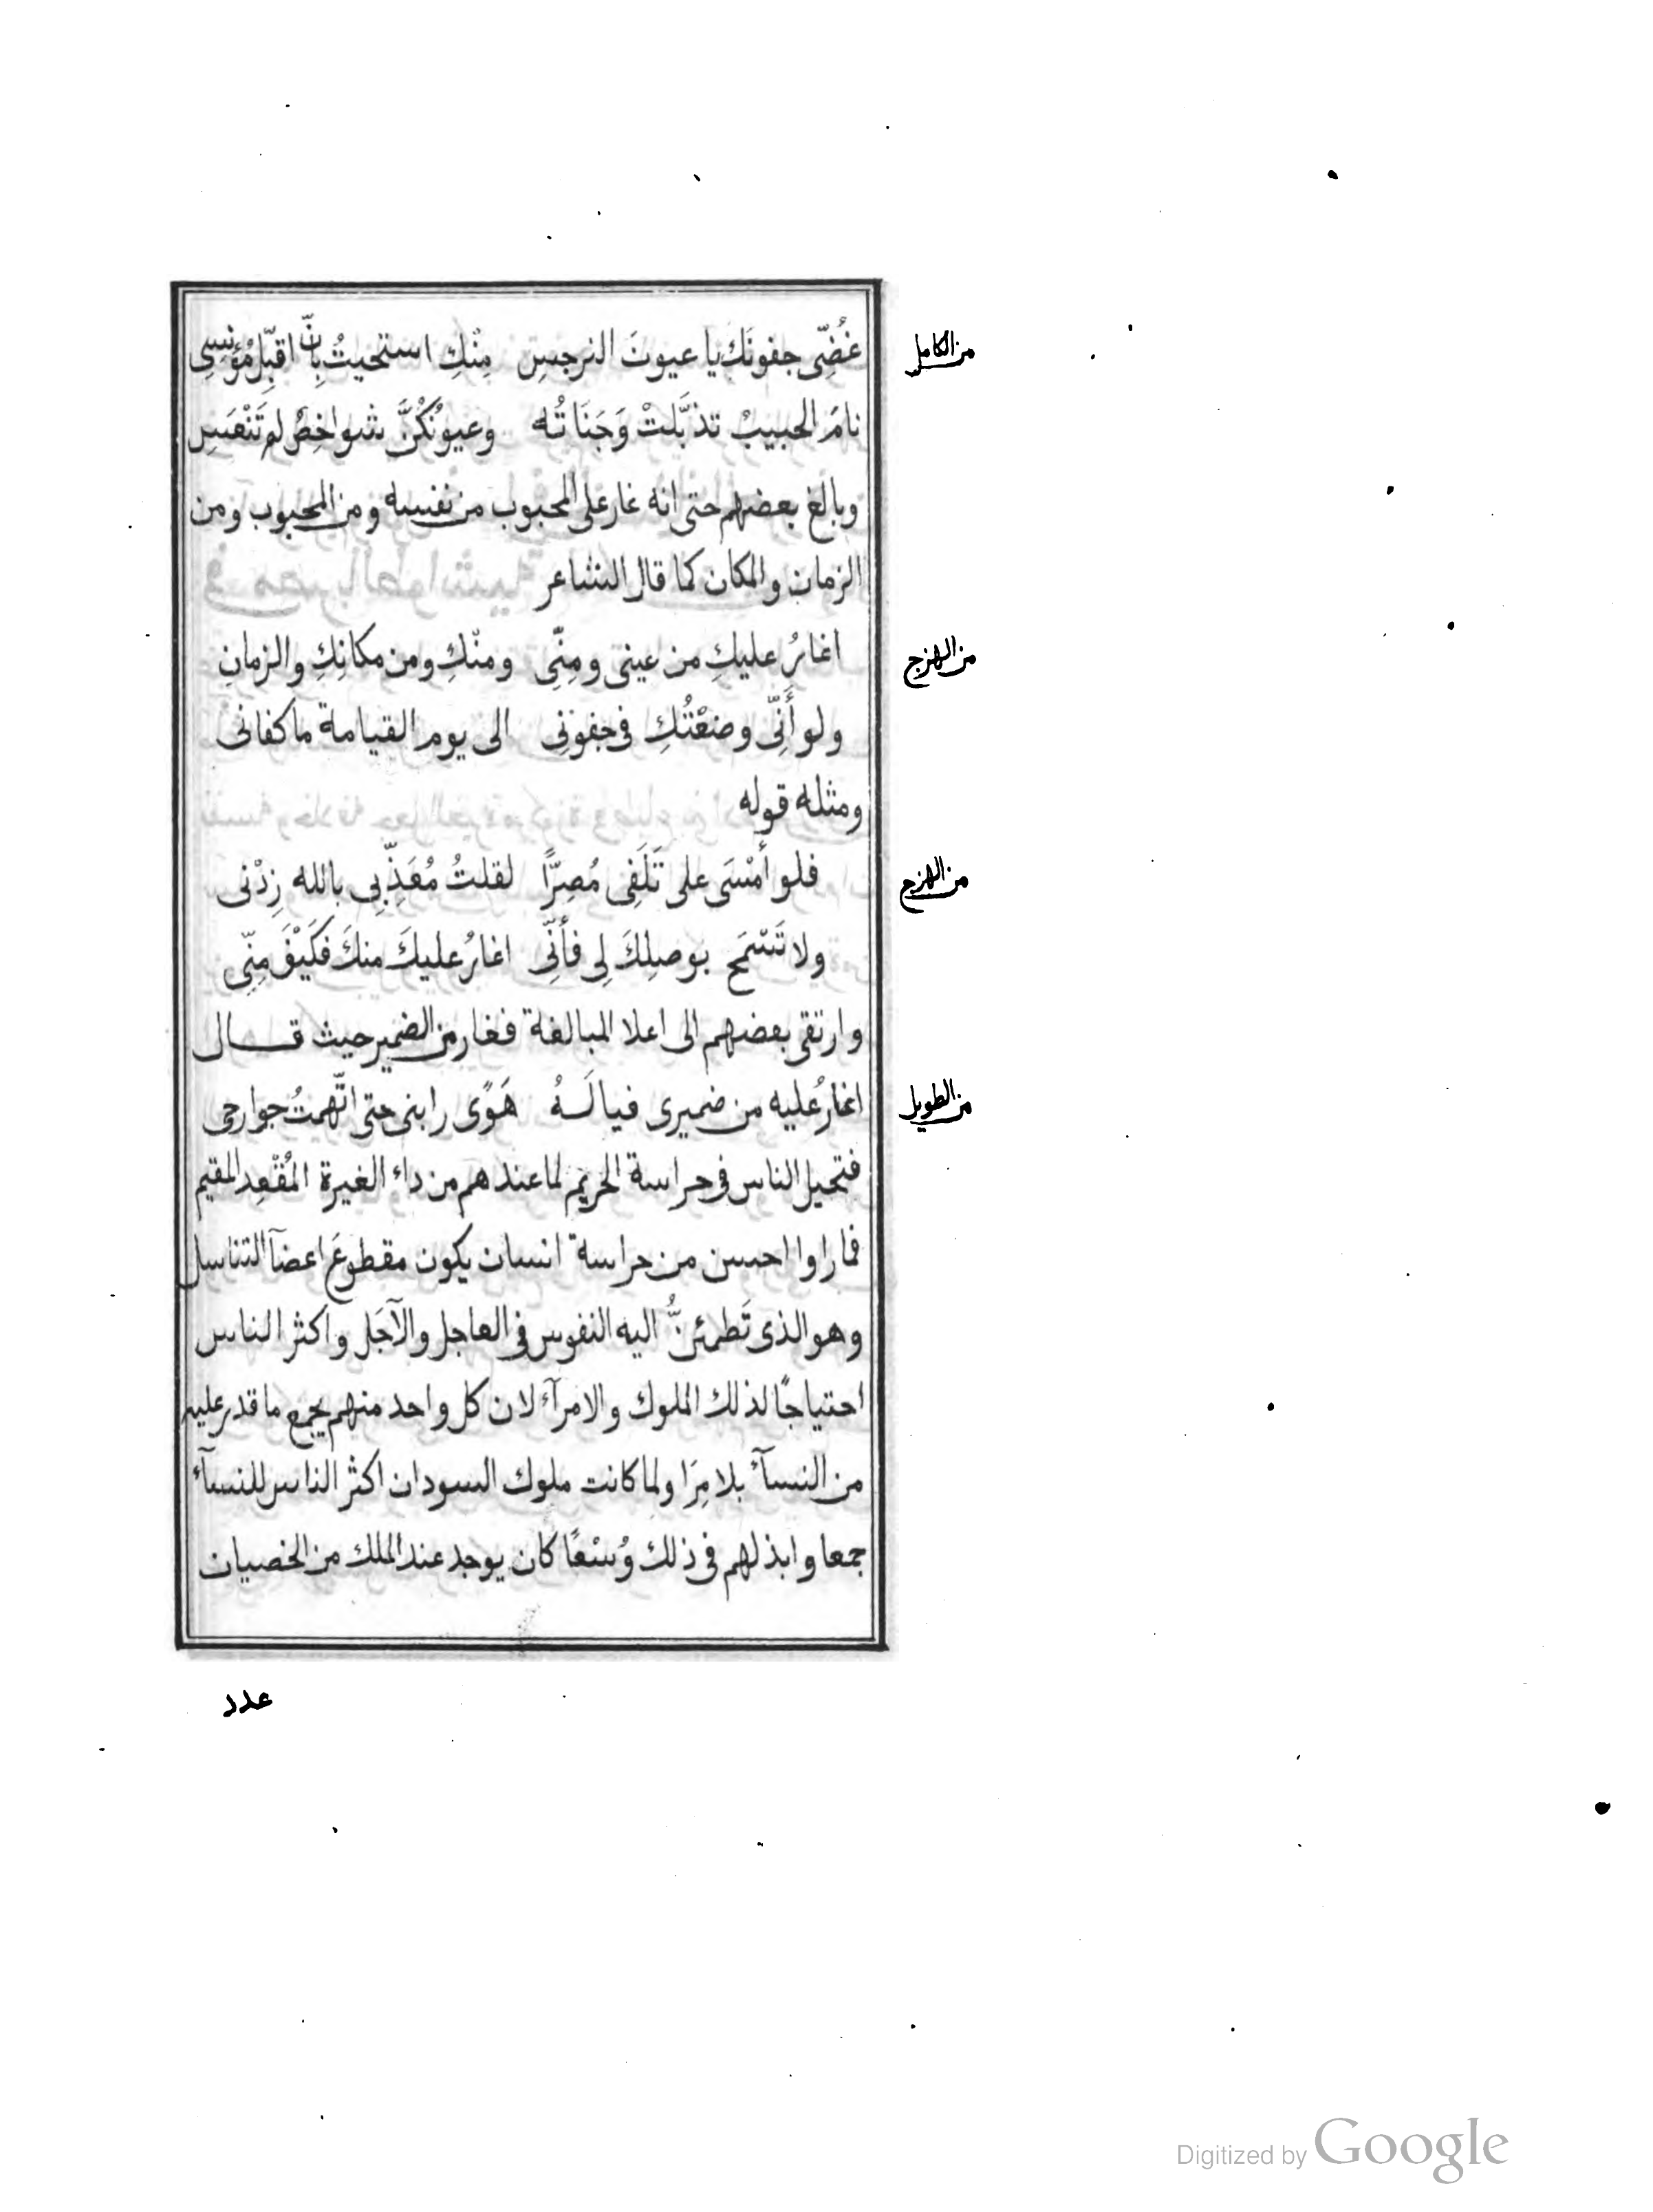 من الكامل
غُضِّى جفونَك يا عيونَ النرجسِ مِنْكِ استحيتُ بِانّ اقبِّل مُؤنِسِى
نامَ الحبيبُ تذبَّلتْ وَجَنَاتُه وعيونُكُنَّ شواخِصٌ لم تَنْعَسِ
وبالغ بعضهم حتى انه غار على المحبوب من نفسه ومن المحبوب ومن
الزمان والمكان كما قال الشاعر
من الهزج
اغارُ عليكِ من عينى ومِنِّى ومنْكِ ومن مكانِكِ والزمانِ
ولو أَنِّى وضعْتُكِ فى جفونِى الى يوم القيامة ما كفانى
ومثله قوله
من الهزج
فلو أَمْسَى على تَلَفِى مُصِرًّا لقلتُ مُعَذِّبِى بالله زِدْنى
ولا تَسْمَح بوصلِكَ لِى فأنِّى اغارُ عليكَ منكَ فكَيْفَ مِنِّى
وارتقى بعضهم الى اعلا المبالغة فغار من الضمير حيث قال
من الطويل
اغارُ عليه من ضميرى فيا لَهُ هَوًى رابنى حتى اتّهمتُ جوارحى
فتحيل الناس فى حراسة الحريم لما عندهم من داء الغيرة المُقْعِد المقيم
فما راوا احسن من حراسة انسان يكون مقطوعَ اعضآ التناسل
وهو الذى تَطمئنُّ اليه النفوس فى العاجل والآجَل واكثر الناس
احتياجًا لذلك الملوك والامرآء لان كل واحد منهم يجمع ما قدر عليه
من النسآء بلا مِرَا ولما كانت ملوك السودان اكثر الناس للنسآء
جمعا وابذلهم فى ذلك وُسْعًا كان يوجد عند الملك من الخصيان
عدد
Digitized by Google